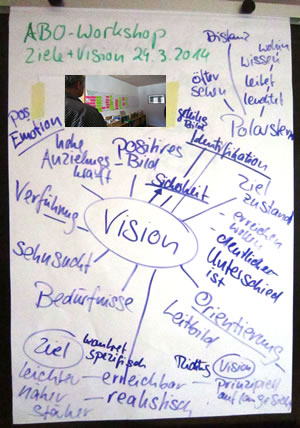 ABO-Workshop
Ziele + Vision 24.3.2014
Distanz
wohin
wissen
öfter
sehen
leitet
leuchtet
Polarstern
pos
Emotion
hohe
Anziehungs
kraft
positives
Bild
geistiges
Bild
Identifikation
Sicherheit
Ziel
zustand
- erreichen
wollen
- deutlicher
Unterschied
ist
Verführung
Vision
Sehnsucht
Bedürfnisse
Orientierung
Leitbild
Ziel
konkret
spezifisch
leichter - erreichbar
näher - realistisch
stärker
Vision
prinzipiell
auf lange Sicht